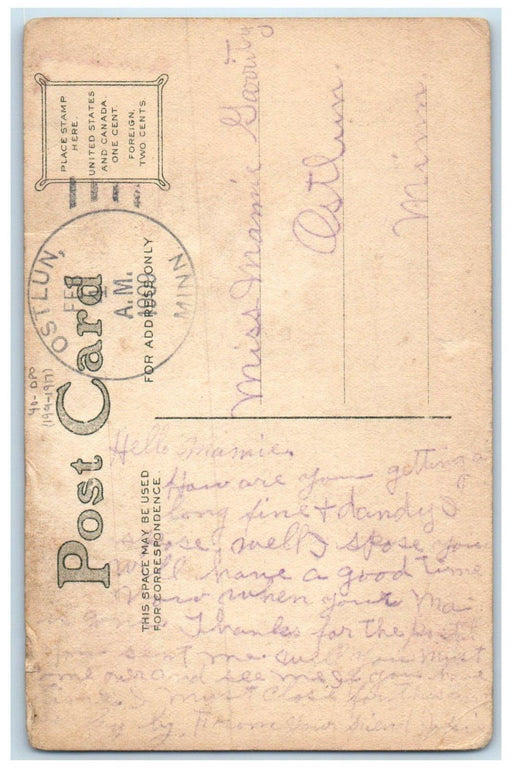 PLACE STAMP
HERE.
UNITED STATES
AND CANADA
ONE CENT.
FOREIGN,
TWO CENTS.
OSTLUN,
MINN
FEB
A.M.
1909
Post Card
FOR ADDRESS ONLY
THIS SPACE MAY BE USED
FOR CORRESPONDENCE.
Miss Mamie Garrity
Ostlun.
Minn
Hello Mamie.
How are you getting a
long fine + dandy I
spose, well I spose you
will have a good time
now when your Ma
is gone. Thanks for the postal
you sent me well you must
come over and see me if you have
time I must close for this
by by From your frend